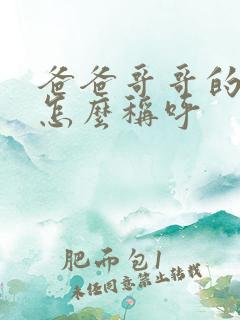 爸爸哥哥的
怎麼稱呼
肥而包1
未经同意禁止转载